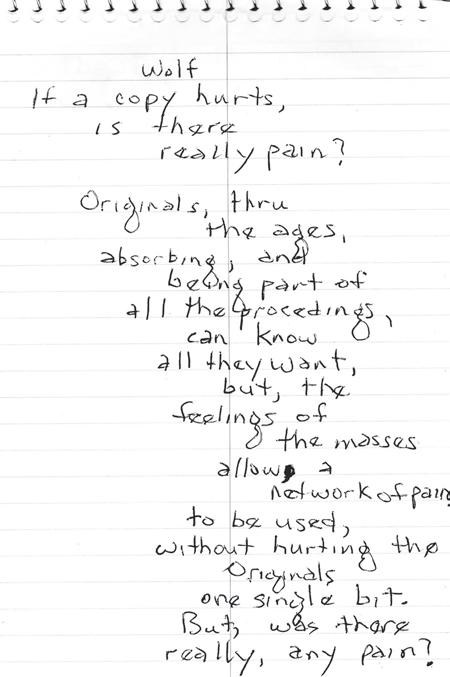 Wolf
If a copy hurts,
is there
really pain?
Originals, thru
the ages,
absorbing, and
being part of
all the procedings,
can know
all they want,
but, the
feelings of
the masses
allow, a
network of pain
to be used,
without hurting the
Originals
one single bit.
But, was there
really, any pain?